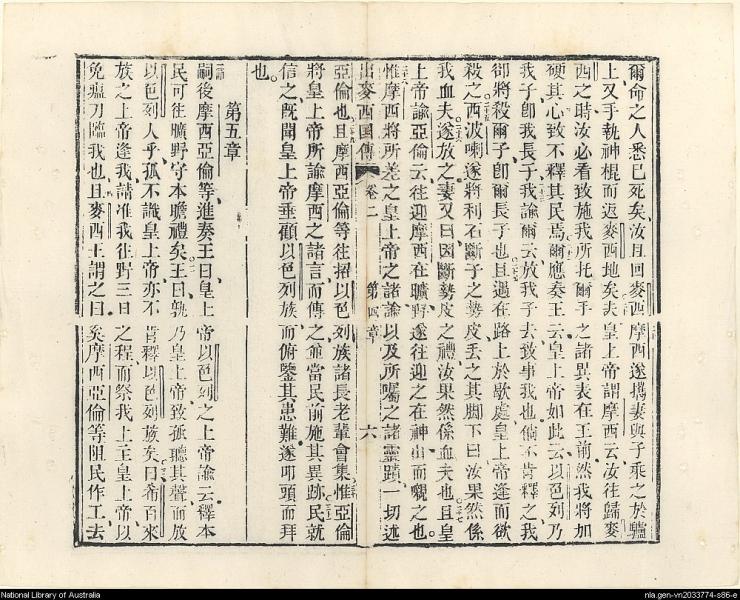 爾命之人悉已死矣汝且回麥西摩西遂攜妻與子乘之於驢
上又手執神棍而返麥西地矣夫皇上帝謂摩西云汝往歸麥
西之時汝必看致施我所托爾手之諸異表在王前然我將加
硬其心致不釋其民焉爾應奏王云皇上帝如此云以色列乃
我子卽我長子我諭爾云放我子去致事我也倘不肯釋之我
卻將殺爾子卽爾長子也且遇在路上於歇處皇上帝逢而欲
殺之西波喇遂將利石斷子之勢皮丟之其脚下曰汝果然係
我血夫遂放之妻又曰因斷勢皮之禮汝果然係血夫也且皇
上帝諭亞倫云往迎摩西在曠野遂往迎之在神山而嚫之也。
惟摩西將所差之皇上帝之諸諭以及所囑之諸靈蹟一切述
出麥西國傳 卷二 第四章 六
亞倫也且摩西亞倫等往招以色列族諸長老輩會集惟亞倫
將皇上帝所諭摩西之諸言而傳之並當民前施其異跡民就
信之旣聞皇上帝垂顧以色列族而俯鑒其患難遂叩頭而拜
也。
第五章
嗣後摩西亞倫等進奏王曰皇上帝以色列之上帝諭云釋本
民可往曠野守本瞻禮矣王曰孰乃皇上帝致孤聽其聲而放
以色列人乎孤不識皇上帝亦不肯釋以色列族矣曰希百來
族之上帝逢我請准我往野三日之程而祭我上主皇上帝以
免瘟刀臨我也且麥西王謂之曰矣摩西亞倫等阻民作工去
National Library of Australia
nla.gen-vn2033774-s86-e